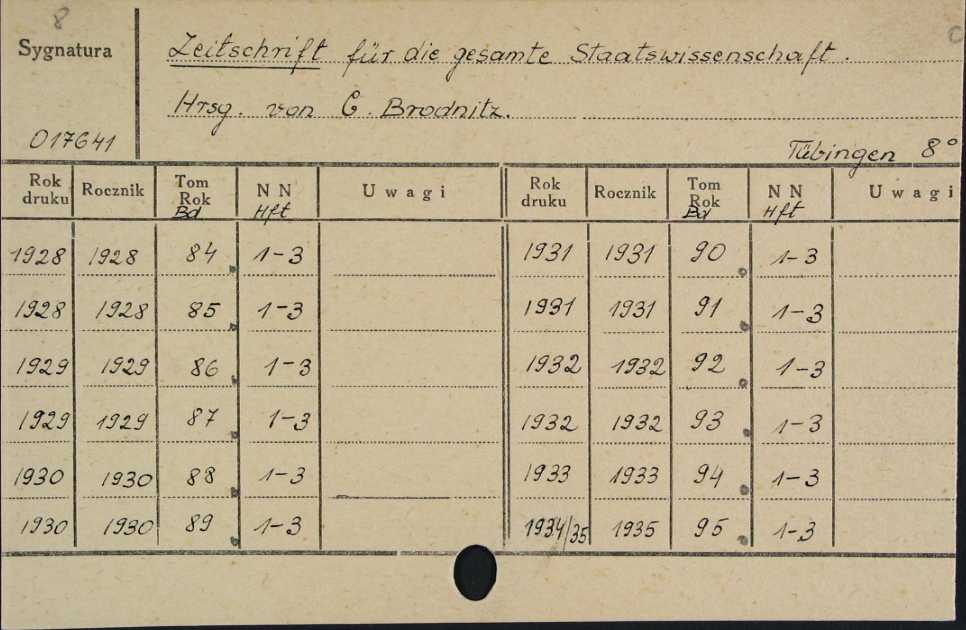 8
Sygnatura
Zeitschrift für die gesamte Staatswissenschaft.
Hrsg. von G. Brodnitz.
017641
Tübingen 8°
Rok druku Rocznik Tom Rok Bd NN Hft Uwagi Rok druku Rocznik Tom Rok Bd NN Hft Uwagi
1928 1928 84 1-3 1931 1931 90 1-3
1928 1928 85 1-3 1931 1931 91 1-3
1929 1929 86 1-3 1932 1932 92 1-3
1929 1929 87 1-3 1932 1932 93 1-3
1930 1930 88 1-3 1933 1933 94 1-3
1930 1930 89 1-3 1934/35 1935 95 1-3